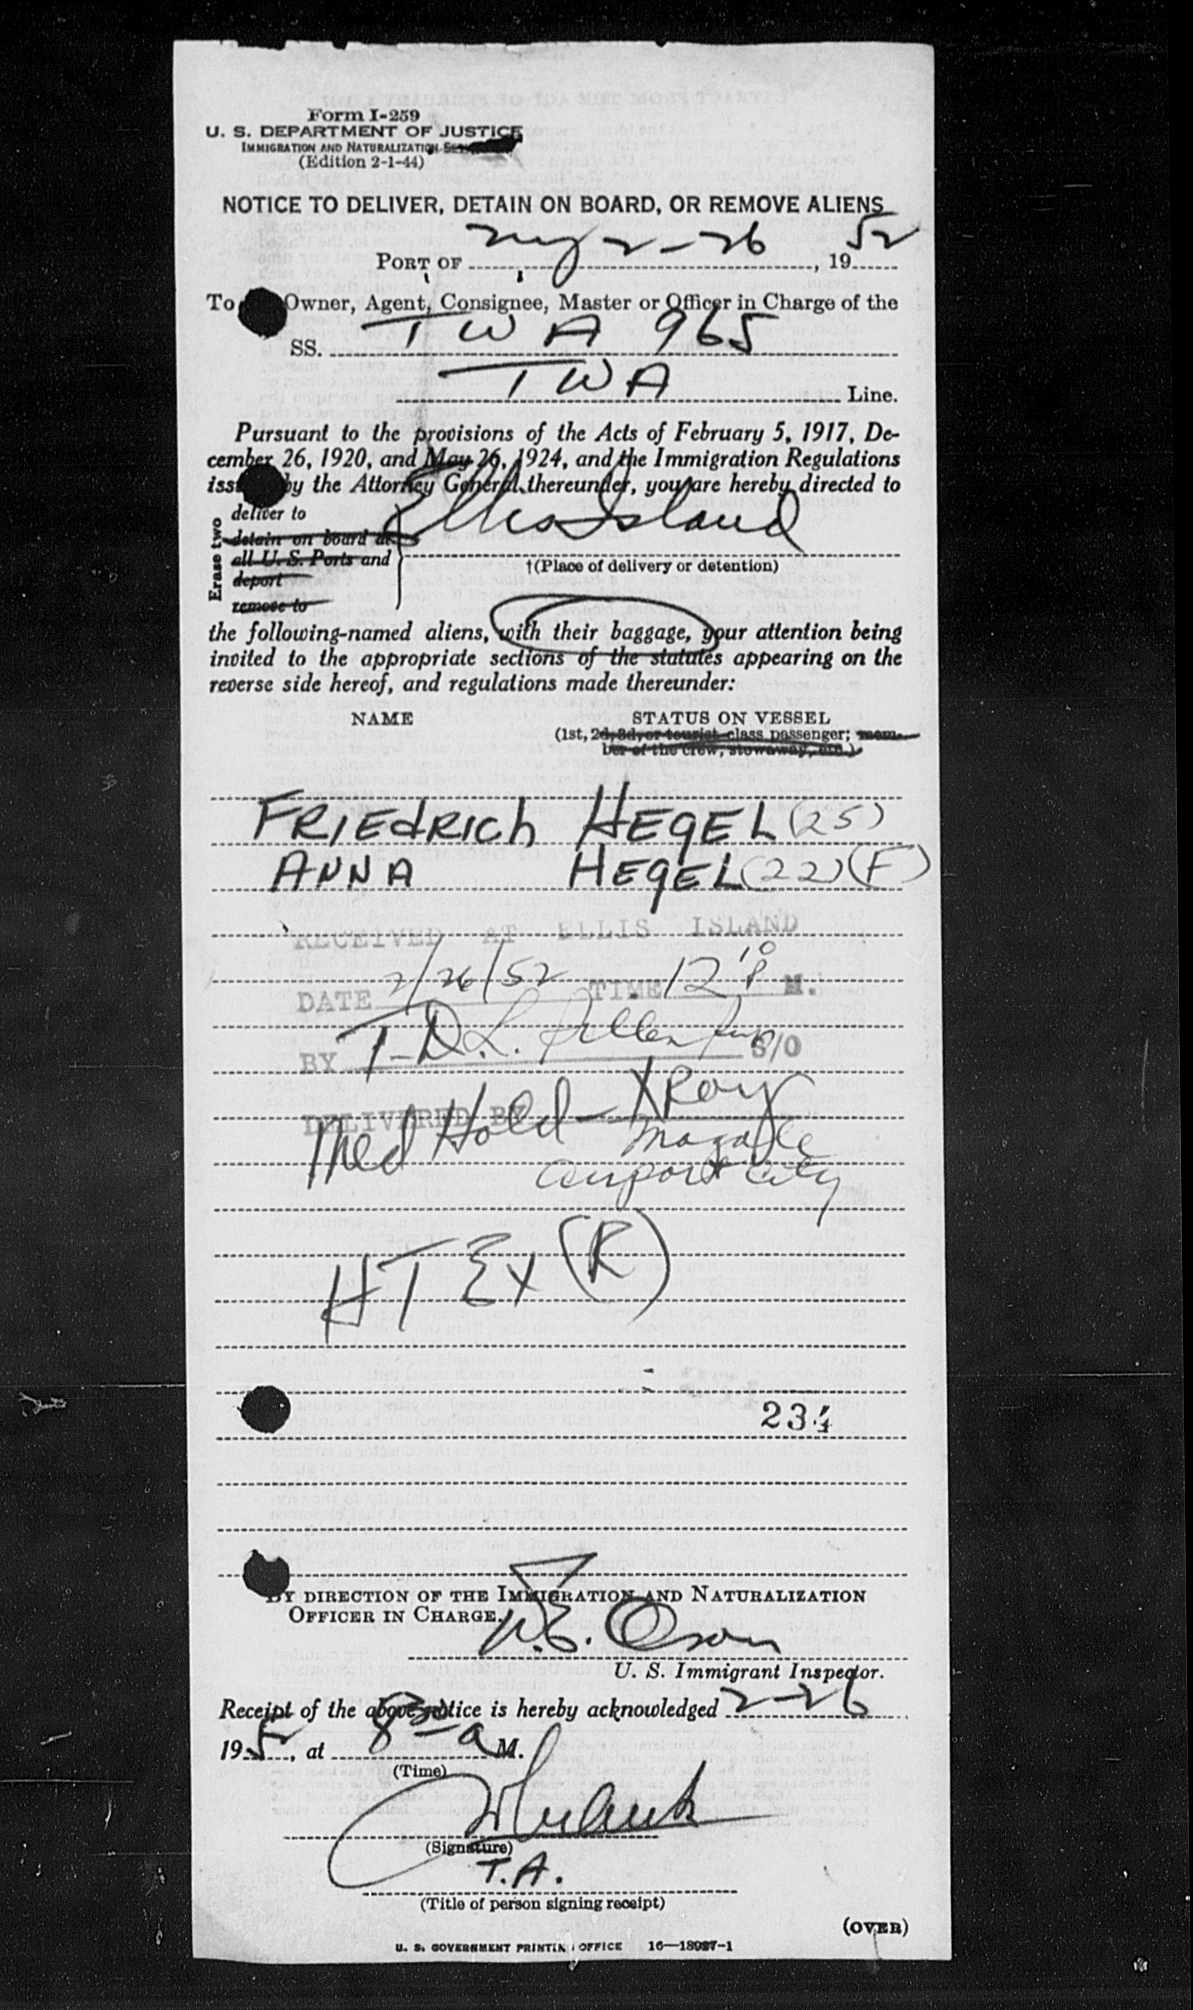 Form I-259
U. S. DEPARTMENT OF JUSTICE
IMMIGRATION AND NATURALIZATION
(Edition 2-1-44)
NOTICE TO DELIVER, DETAIN ON BOARD, OR REMOVE ALIENS
PORT OF NY 2-26, 1952
To Owner, Agent, Consignee, Master or Officer in Charge of the
SS. TWA 965
TWA Line.
Pursuant to the provisions of the Acts of February 5, 1917, De-
cember 26, 1920, and May 26, 1924, and the Immigration Regulations
issued by the Attorney General thereunder, you are hereby directed to
Erase two
deliver to
detain on board at
all U. S. Ports and
deport
remove to
Ellis Island
†(Place of delivery or detention)
the following-named aliens, with their baggage, your attention being
invited to the appropriate sections of the statutes appearing on the
reverse side hereof, and regulations made thereunder:
NAME STATUS ON VESSEL
(1st, 2d, 3d, or tourist-class passenger; mem-
ber of the crew, stowaway, etc.)
FRIEdRICh HEGEL (25)
ANNA HEGEL (22) (F)
RECEIVED AT ELLIS ISLAND
DATE 2/26/52 TIME 12 10 P M.
BY T-D.L. S/O
DELIVERED BY
Med Hold - XRay
airport city
HT Ex (R)
234
BY DIRECTION OF THE IMMIGRATION AND NATURALIZATION
OFFICER IN CHARGE.
U. S. Immigrant Inspector.
Receipt of the above notice is hereby acknowledged 2-26
195, at 8 30 a M.
(Time)
(Signature)
T.A.
(Title of person signing receipt)
(OVER)
U. S. GOVERNMENT PRINTING OFFICE 16—18927-1